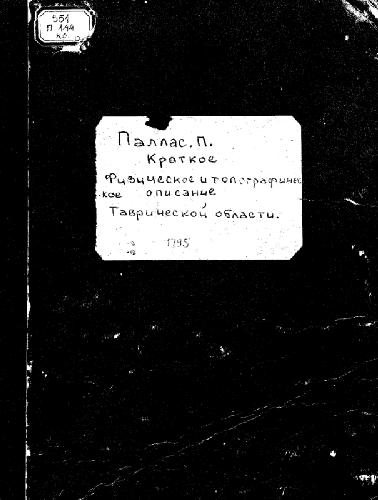 551
П 144
Паллас, П.
Краткое
Физическое и топографичес
кое описание
Таврической области.
1795